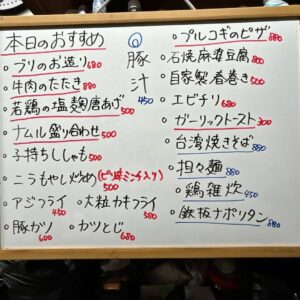 本日のおすすめ
・ブリのお造り 680
・牛肉のたたき 880
・若鶏の塩麹唐あげ 500
・ナムル盛り合わせ 500
・子持ちししゃも 500
・ニラもやし炒め(ピリ辛ミンチ入り) 500
・アジフライ 450 ・大粒カキフライ 580
・豚カツ 600 ・カツとじ 680
◎豚汁 450
・プルコギのピザ 880
・石焼麻婆豆腐 880
・自家製春巻き 500
・エビチリ 680
・ガーリックトースト 300
・台湾焼きそば 880
・担々麺 880
・鶏雑炊 450
・鉄板ナポリタン 880